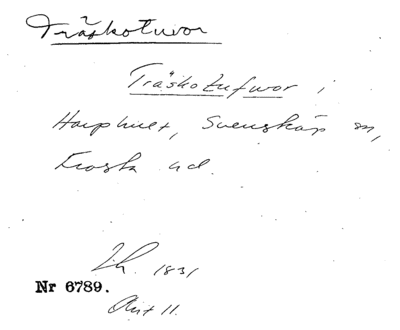 Träskotuvor
Träskotufvor i
Harphult, Svensköp sn,
Frosta hd.
Lh. 1831
Nr 6789.
Akt 11.